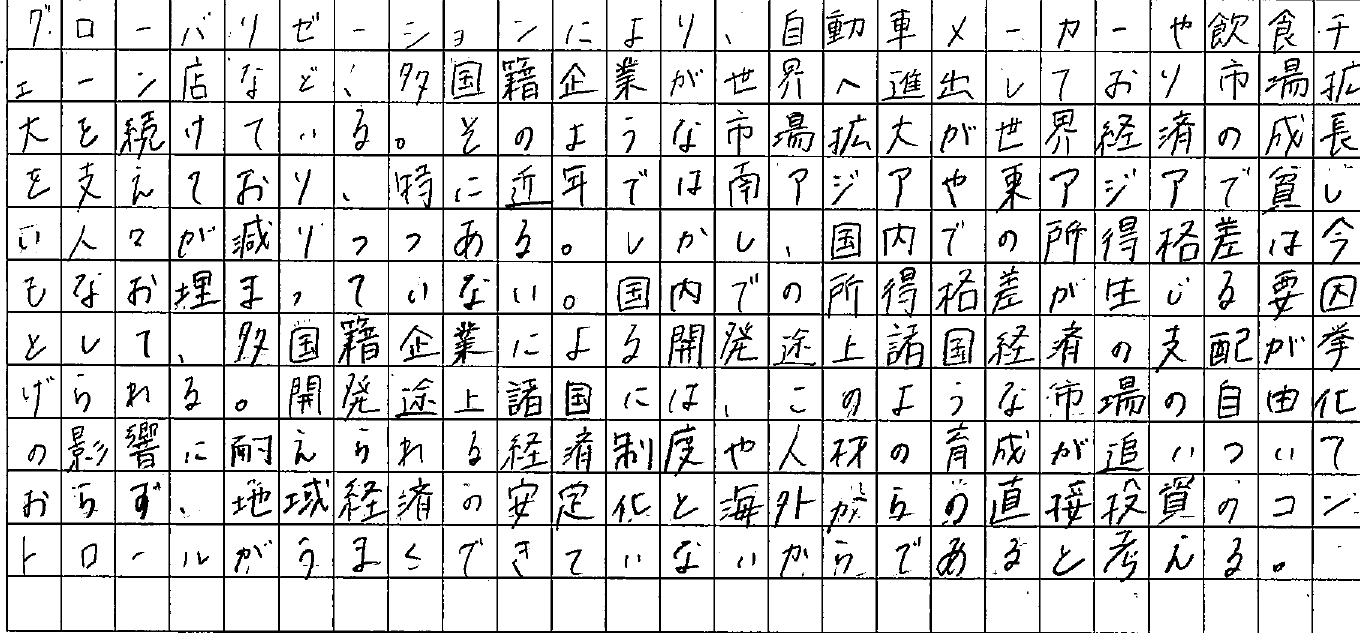 グローバリゼーションにより、自動車メーカーや飲食チ
ェーン店など、多国籍企業が世界へ進出しており市場拡
大を続けている。そのような市場拡大が世界経済の成長
を支えており、特に近年では南アジアや東アジアで貧し
い人々が減りつつある。しかし、国内での所得格差は今
もなお埋まっていない。国内での所得格差が生じる要因
として、多国籍企業による開発途上諸国経済の支配が挙
げられる。開発途上諸国には、このような市場の自由化
の影響に耐えられる経済制度や人材の育成が追いついて
おらず、地域経済の安定化と海外からの直接投資のコン
トロールがうまくできていないからであると考える。